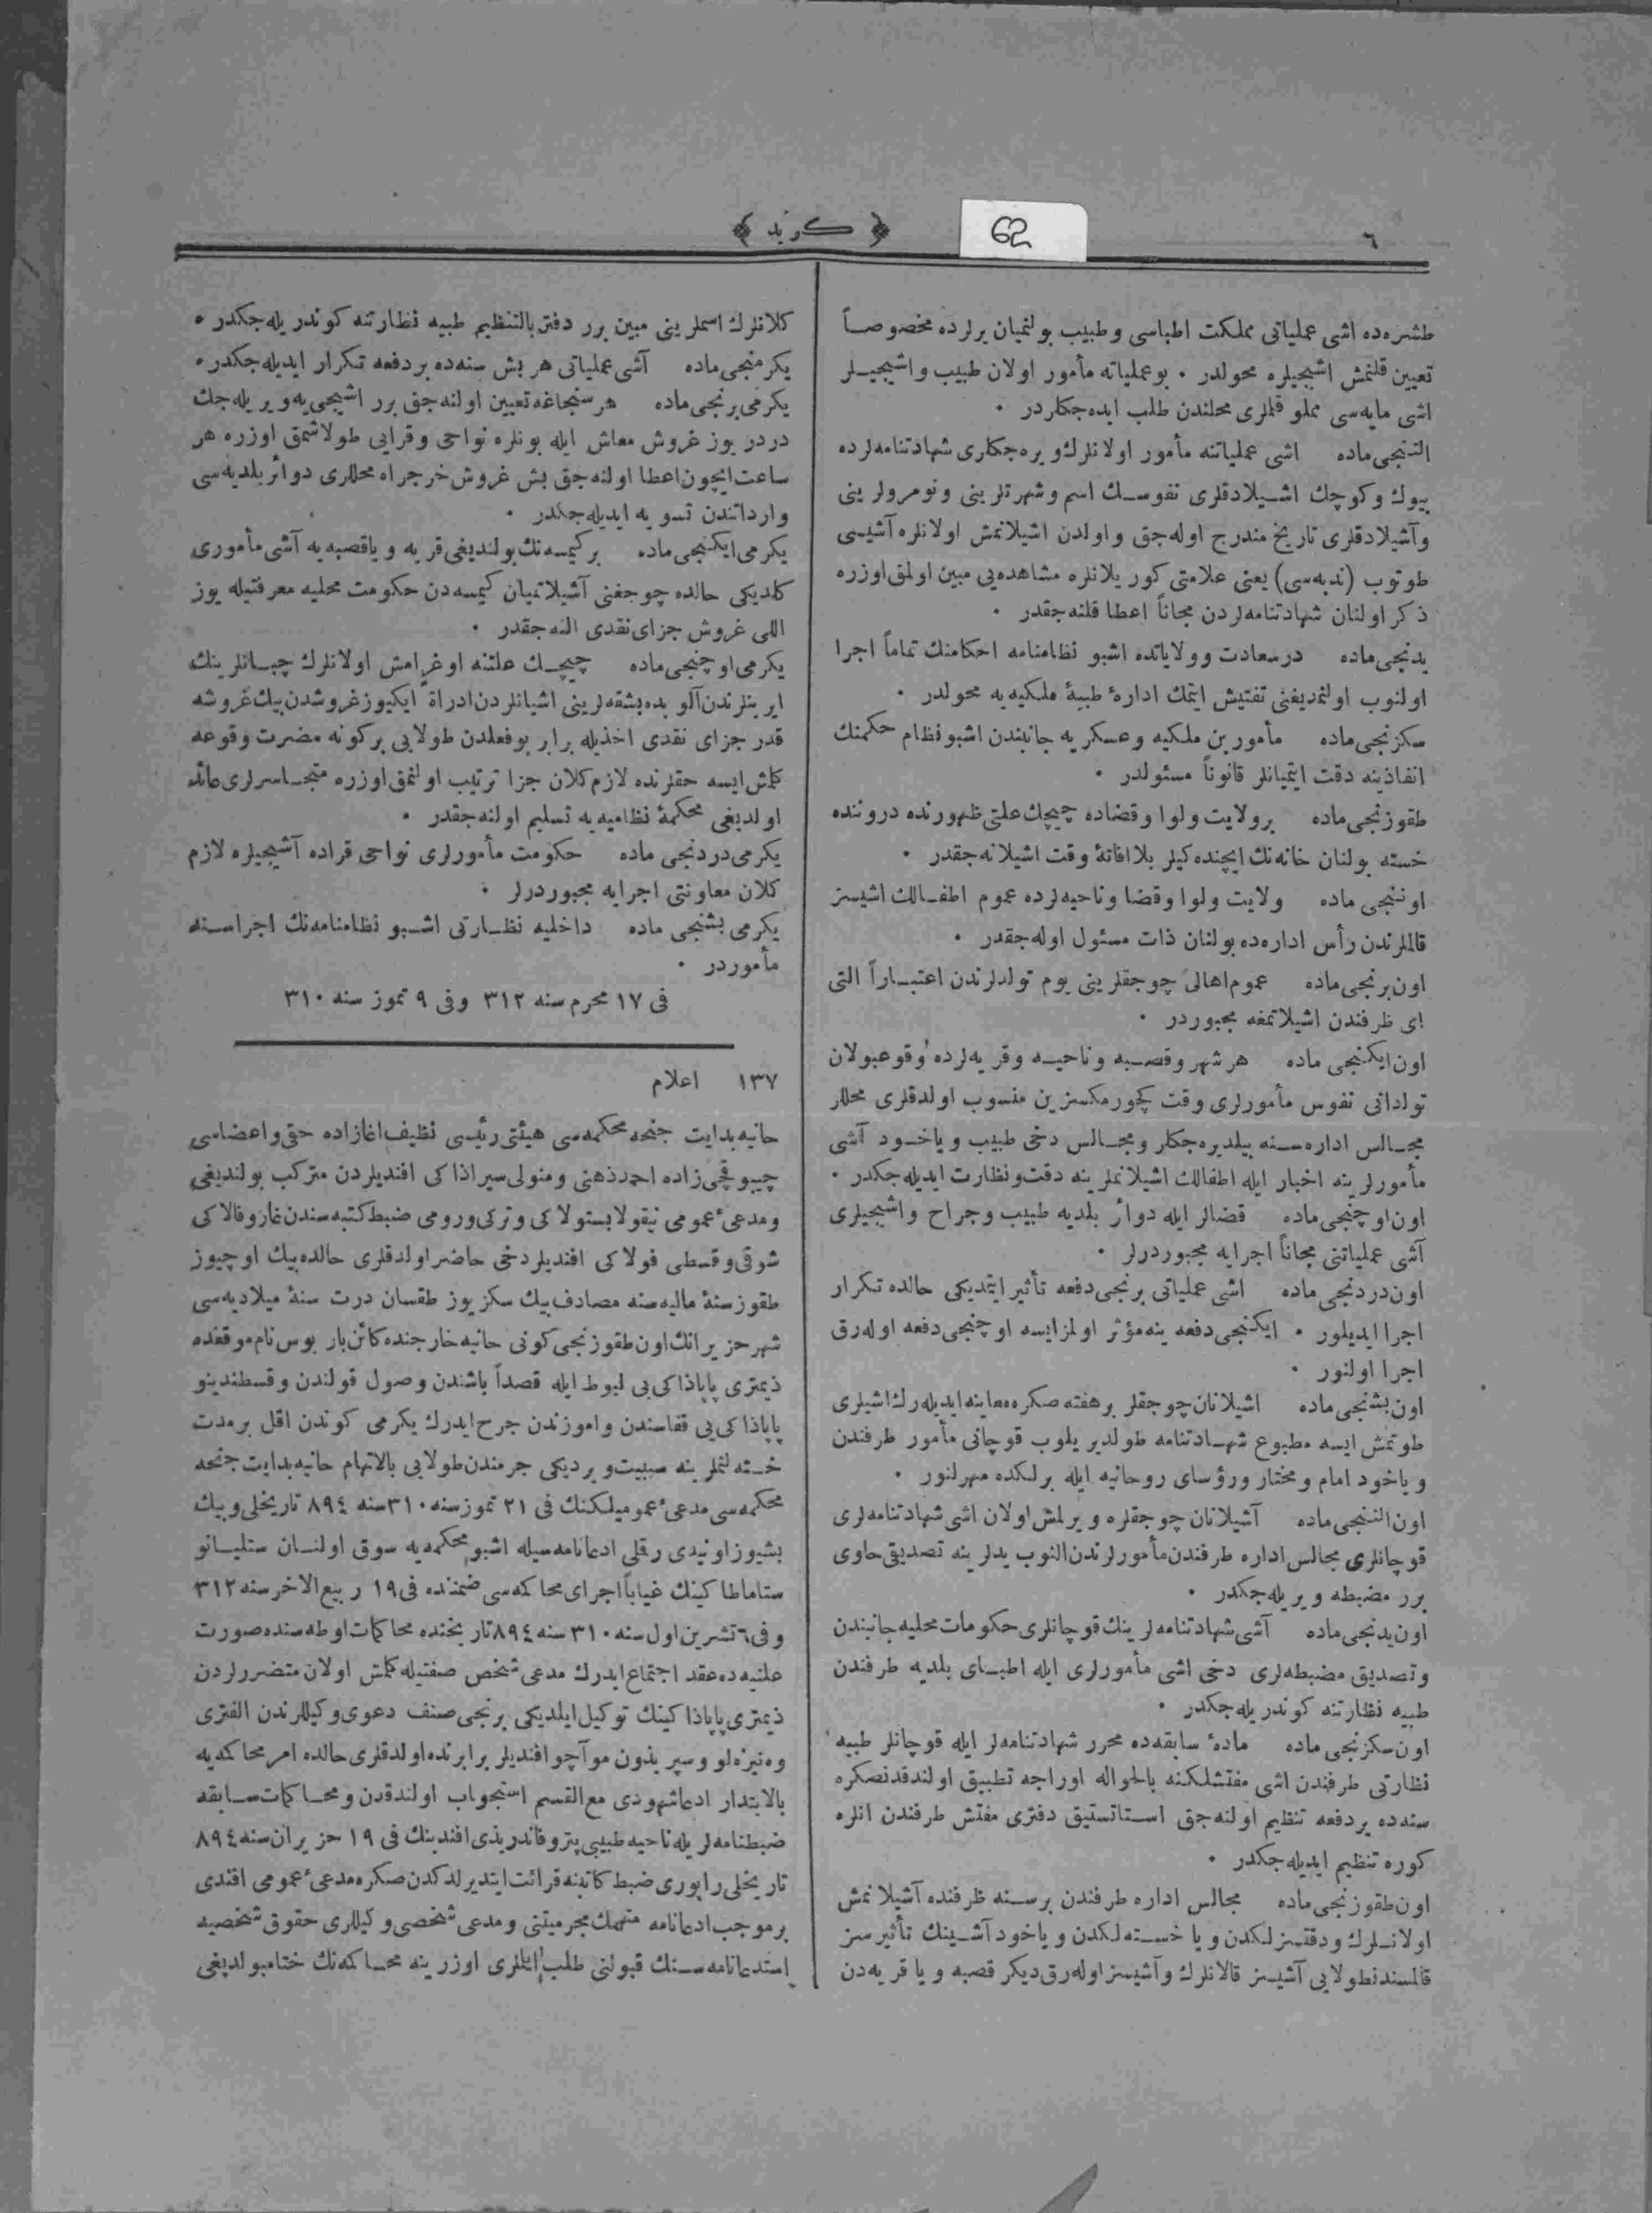 ٦
62
﴿ كريد ﴾
طشره‌ده اشی عملیاتی مملكت اطباسی و طبیب بولنمیان یرلرده مخصوصاً
تعیین قلنمش اشیجیلره محولدر ٠ بوعملیاته مأمور اولان طبیب واشیجیلر
اشی مایه‌سی مملو قلملری محلندن طلب ایده‌جكلردر ٠
التنجی ماده اشی عملیاتنه مأمور اولانلرك ویره‌جكلری شهادتنامه‌لرده
بیوك وكوچك اشیلادقلری نفوسك اسم وشهرتلرینی ونومرولرینی
وآشیلادقلری تاریخ مندرج اوله‌جق واولدن اشیلانمش اولانلره آشیسی
طوتوب (ندبه‌سی) یعنی علامتی كوریلانلره مشاهده‌یی مبین اولمق اوزره
ذكر اولنان شهادتنامه‌لردن مجاناً اعطا قلنه‌جقدر ٠
یدنجی ماده درسعادت وولایاتده اشبو نظامنامه احكامنك تماماً اجرا
اولنوب اولنمدیغنی تفتیش ایتمك ادارهٔ طبیهٔ ملكیه‌یه محولدر ٠
سكزنجی ماده مأمورین ملكیه وعسكریه جانبندن اشبو نظام حكمنك
انفاذینه دقت ایتمیانلر قانوناً مسئولدر ٠
طقوزنجی ماده برولایت ولوا وقضاده چیچك علتی ظهورنده دروننده
خسته بولنان خانه‌نك ایچنده‌كیلر بلاافاتهٔ وقت اشیلانه‌جقدر ٠
اوننجی ماده ولایت ولوا وقضا وناحیه‌لرده عموم اطفالك اشیسز
قالملرندن رأس اداره‌ده بولنان ذات مسئول اوله‌جقدر ٠
اون‌برنجی ماده عموم اهالی چوجقلرینی یوم تولدلرندن اعتباراً التی
ای ظرفندن اشیلاتمغه مجبوردر ٠
اون‌ایكنجی ماده هر شهر وقصبه وناحیه وقریه‌لرده وقوعبولان
تولداتی نفوس مأمورلری وقت كچورمكسزین منسوب اولدقلری محللر
مجالس اداره‌سنه بیلدیره‌جكلر ومجالس دخی طبیب ویاخود آشی
مأمورلرینه اخبار ایله اطفالك اشیلانملرینه دقت ونظارت ایدیله‌جكدر ٠
اون‌اوچنجی ماده قضالر ایله دوائر بلدیه طبیب وجراح واشیجیلری
آشی عملیاتنی مجاناً اجرایه مجبوردرلر ٠
اون‌دردنجی ماده اشی عملیاتی برنجی دفعه تأثیر ایتمدیكی حالده تكرار
اجرا ایدیلور ٠ ایكنجی دفعه ینه مؤثر اولمزایسه اوچنجی دفعه اوله‌رق
اجرا اولنور ٠
اون‌بشنجی ماده اشیلانان چوجقلر برهفته صكره معاینه ایدیله‌رك اشیلری
طوتمش ایسه مطبوع شهادتنامه طولدیریلوب قوچانی مأمور طرفندن
ویاخود امام ومختار ورؤسای روحانیه ایله برلكده مهرلنور ٠
اون‌التنجی ماده آشیلانان چوجقلره ویرلمش اولان اشی شهادتنامه‌لری
قوچانلری مجالس اداره طرفندن مأمورلرندن النوب یدلرینه تصدیقی حاوی
برر مضبطه ویریله‌جكدر ٠
اون‌یدنجی ماده آشی شهادتنامه‌لرینك قوچانلری حكومات محلیه جانبندن
وتصدیق مضبطه‌لری دخی اشی مأمورلری ایله اطبای بلدیه طرفندن
طبیه نظارتنه كوندریله‌جكدر ٠
اون‌سكزنجی ماده مادهٔ سابقه‌ده محرر شهادتنامه‌لر ایله قوچانلر طبیه
نظارتی طرفندن اشی مفتشلكنه بالحواله اوراجه تطبیق اولندقدنصكره
سنه‌ده بردفعه تنظیم اولنه‌جق استاتستیق دفتری مفتش طرفندن انلره
كوره تنظیم ایدیله‌جكدر ٠
اون‌طقوزنجی ماده مجالس اداره طرفندن برسنه ظرفنده آشیلانمش
اولانلرك ودقتسزلكدن ویا خسته‌لكدن ویاخود آشینك تأثیرسز
قالمسندنطولایی آشیسز قالانلرك وآشیسز اوله‌رق دیكر قصبه ویا قریه‌دن
كلانلرك اسملرینی مبین برر دفتر بالتنظیم طبیه نظارتنه كوندریله‌جكدر ٠
یكرمنجی ماده آشی عملیاتی هر بش سنه‌ده بردفعه تكرار ایدیله‌جكدر ٠
یكرمی‌برنجی ماده هر سنجاغه تعیین اولنه‌جق برر اشیجی‌یه ویریله‌جك
دردر یوز غروش معاش ایله بونلره نواحی وقرایی طولاشمق اوزره هر
ساعت ایچون اعطا اولنه‌جق بش غروش خرجراه محللری دوائر بلدیه‌سی
وارداتندن تسویه ایدیله‌جكدر ٠
یكرمی‌ایكنجی ماده بر كیمسه‌نك بولندیغی قریه ویاقصبه‌یه آشی مأموری
كلدیكی حالده چوجغنی آشیلاتمیان كیمسه‌دن حكومت محلیه معرفتیله یوز
اللی غروش جزای نقدی النه‌جقدر ٠
یكرمی‌اوچنجی ماده چیچك علتنه اوغرامش اولانلرك چبانلرینك
ایرینلرندن آلوبده بشقه‌لرینی اشیلانلردن ادراة ایكیوز غروشدن بیك غروشه
قدر جزای نقدی اخذیله برابر بوفعلدن طولایی بركونه مضرت وقوعه
كلمش ایسه حقلرنده لازم كلان جزا ترتیب اولنمق اوزره متجاسرلری عائد
اولدیغی محكمهٔ نظامیه‌یه تسلیم اولنه‌جقدر ٠
یكرمی‌دردنجی ماده حكومت مأمورلری نواحی قراده آشیجیلره لازم
كلان معاونتی اجرایه مجبوردرلر ٠
یكرمی بشنجی ماده داخلیه نظارتی اشبو نظامنامه‌نك اجراسنه
مأموردر ٠
فی ١٧ محرم سنه ٣١٢ وفی ٩ تموز سنه ٣١٠
١٣٧ اعلام
حانیه بدایت جنحه محكمه‌سی هیئتی رئیسی نظیف اغازاده حقی واعضاسی
چیبوقچی‌زاده احمد ذهنی ومنولی سیراذاكی افندیلردن متركب بولندیغی
ومدعیٔ عمومی نیقولا بستولاكی وتركی ورومی ضبط كتبه‌سندن غازوفالاكی
شوقی وقسطی فولاكی افندیلر دخی حاضر اولدقلری حالده بیك اوچیوز
طقوز سنهٔ مالیه‌سنه مصادف بیك سكز یوز طقسان درت سنهٔ میلادیه‌سی
شهر حزیرانك اون طقوزنجی كونی حانیه خارجنده كائن بار بوس نام موقفده
ذیمتری پاپاذاكی‌یی لیوط ایله قصداً باشندن وصول قولندن وقسطندینو
پاپاذاكی‌یی قفاسندن واموزندن جرح ایدرك یكرمی كوندن اقل برمدت
خسته‌لنملرینه سببیت ویردیكی جرمندن طولایی بالاتهام حانیه بدایت جنحه
محكمه‌سی مدعیٔ عمومیلكنك فی ٢١ تموز سنه ٣١٠ سنه ٨٩٤ تاریخلی وبیك
بشیوز اونیدی رقملی ادعانامه‌سیله اشبو محكمه‌یه سوق اولنان ستلیانو
ستاماطاكینك غیاباً اجرای محاكمه‌سی ضمننده فی ١٩ ربیع الاخر سنه ٣١٢
وفی ٦ تشرین اول سنه ٣١٠ سنه ٨٩٤ تاریخنده محاكمات اوطه‌سنده صورت
علنیه‌ده عقد اجتماع ایدرك مدعی شخص صفتیله كلمش اولان متضررلردن
ذیمتری پاپاذاكینك توكیل ایلدیكی برنجی صنف دعوی وكیللرندن الفتری
وه‌نیزه‌لو وسپریذون موآچو افندیلر برابرنده اولدقلری حالده امر محاكمه‌یه
بالابتدار ادعا شهودی مع القسم استجواب اولندقدن ومحاكمات سابقه
ضبطنامه‌لریله ناحیه طبیبی پترو فاندریذی افندینك فی ١٩ حزیران سنه ٨٩٤
تاریخلی راپوری ضبط كاتبنه قرائت ایتدیرلدكدن صكره مدعیٔ عمومی افندی
برموجب ادعانامه متهمك مجرمیتنی ومدعی شخصی وكیللری حقوق شخصیه
استدعانامه‌سنك قبولنی طلب ایتملری اوزرینه محاكمه‌نك ختامبولدیغی